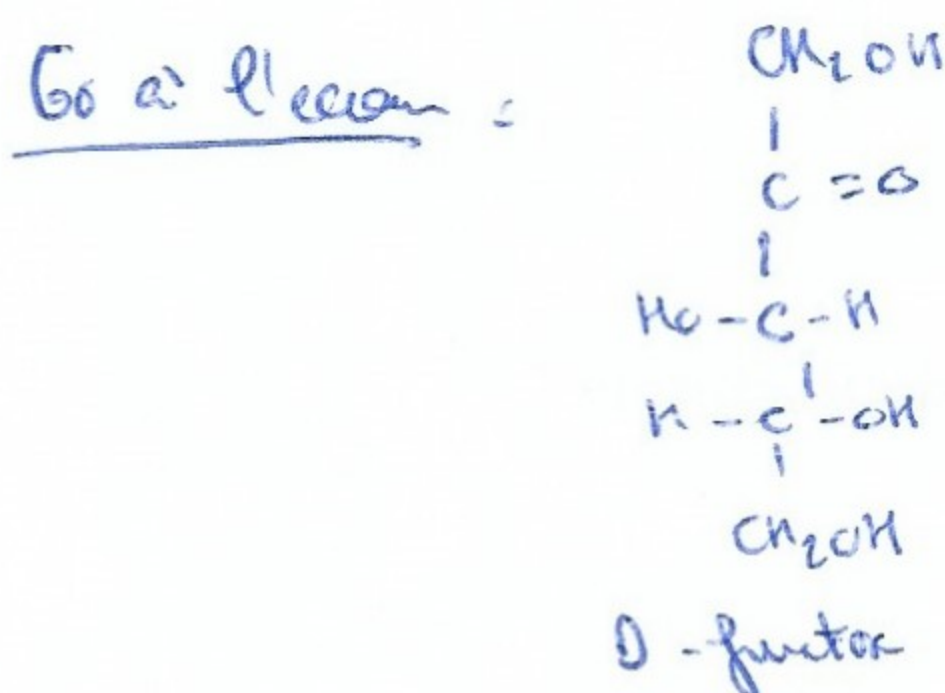 à l'
CH2OH
|
C =O
|
HO - C - H
|
H - C - OH
|
CH2OH
D - fructose